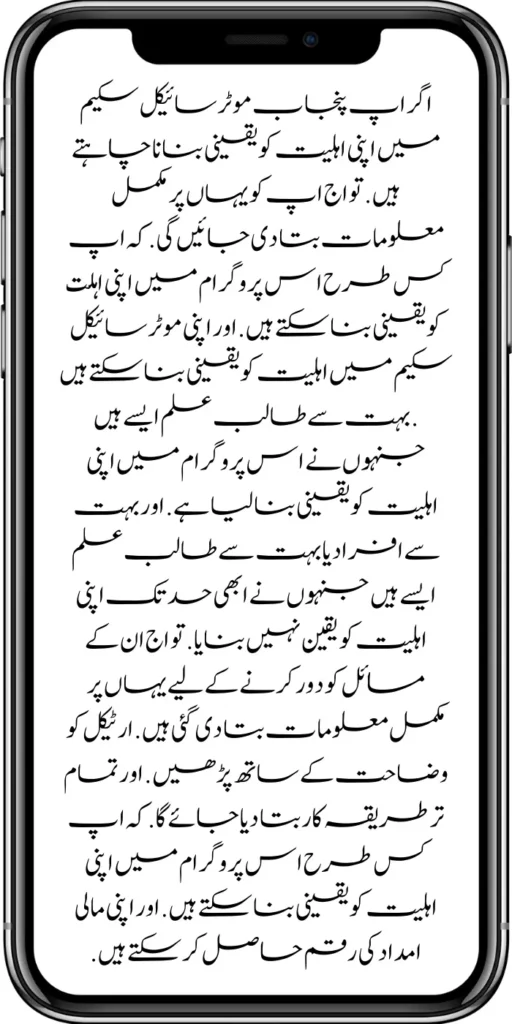 اگر اپ پنجاب موٹر سائیکل سکیم
میں اپنی اہلیت کو یقینی بنانا چاہتے
ہیں. تو اج اپ کو یہاں پر مکمل
معلومات بتا دی جائیں گی. کہ اپ
کس طرح اس پروگرام میں اپنی اہلت
کو یقینی بنا سکتے ہیں. اور اپنی موٹر سائیکل
سکیم میں اہلیت کو یقینی بنا سکتے ہیں
. بہت سے طالب علم ایسے ہیں
جنہوں نے اس پروگرام میں اپنی
اہلیت کو یقینی بنا لیا ہے. اور بہت
سے افراد یا بہت سے طالب علم
ایسے ہیں جنہوں نے ابھی حد تک اپنی
اہلیت کو یقین نہیں بنایا. تو اج ان کے
مسائل کو دور کرنے کے لیے یہاں پر
مکمل معلومات بتا دی گئی ہیں. ارٹیکل کو
وضاحت کے ساتھ پڑھیں. اور تمام
تر طریقہ کار بتا دیا جائے گا. کہ اپ
کس طرح اس پروگرام میں اپنی
اہلیت کو یقینی بنا سکتے ہیں. اور اپنی مالی
امداد کی رقم حاصل کر سکتے ہیں.